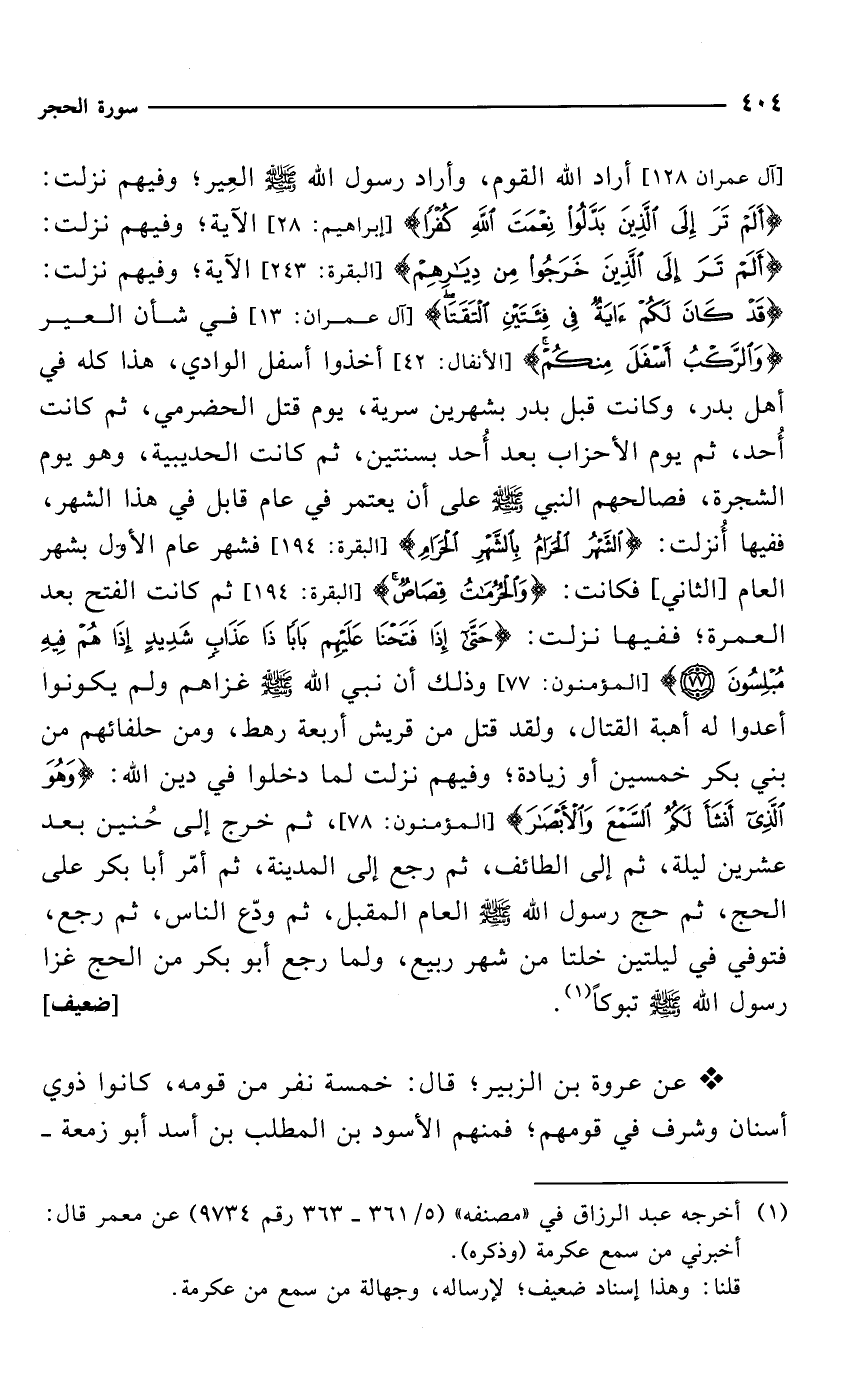 ٤٠٤ سورة الحجر
[آل عمران ١٢٨] أراد الله القوم، وأراد رسول الله ﷺ العِير؛ وفيهم نزلت:
﴿أَلَمْ تَرَ إِلَى ٱلَّذِينَ بَدَّلُوا۟ نِعْمَتَ ٱللَّهِ كُفْرًا﴾ [إبراهيم: ٢٨] الآية؛ وفيهم نزلت:
﴿أَلَمْ تَرَ إِلَى ٱلَّذِينَ خَرَجُوا۟ مِن دِيَٰرِهِمْ﴾ [البقرة: ٢٤٣] الآية؛ وفيهم نزلت:
﴿قَدْ كَانَ لَكُمْ ءَايَةٌ فِى فِئَتَيْنِ ٱلْتَقَتَا ۖ﴾ [آل عمران: ١٣] في شأن العير
﴿وَٱلرَّكْبُ أَسْفَلَ مِنكُمْ ۚ﴾ [الأنفال: ٤٢] أخذوا أسفل الوادي، هذا كله في
أهل بدر، وكانت قبل بدر بشهرين سرية، يوم قتل الحضرمي، ثم كانت
أُحد، ثم يوم الأحزاب بعد أُحد بسنتين، ثم كانت الحديبية، وهو يوم
الشجرة، فصالحهم النبي ﷺ على أن يعتمر في عام قابل في هذا الشهر،
ففيها أُنزلت: ﴿ٱلشَّهْرُ ٱلْحَرَامُ بِٱلشَّهْرِ ٱلْحَرَامِ﴾ [البقرة: ١٩٤] فشهر عام الأوّل بشهر
العام [الثاني] فكانت: ﴿وَٱلْحُرُمَٰتُ قِصَاصٌ ۚ﴾ [البقرة: ١٩٤] ثم كانت الفتح بعد
العمرة؛ ففيها نزلت: ﴿حَتَّىٰٓ إِذَا فَتَحْنَا عَلَيْهِم بَابًا ذَا عَذَابٍ شَدِيدٍ إِذَا هُمْ فِيهِ
مُبْلِسُونَ ٧٧﴾ [المؤمنون: ٧٧] وذلك أن نبي الله ﷺ غزاهم ولم يكونوا
أعدوا له أهبة القتال، ولقد قتل من قريش أربعة رهط، ومن حلفائهم من
بني بكر خمسين أو زيادة؛ وفيهم نزلت لما دخلوا في دين الله: ﴿وَهُوَ
ٱلَّذِىٓ أَنشَأَ لَكُمُ ٱلسَّمْعَ وَٱلْأَبْصَٰرَ﴾ [المؤمنون: ٧٨]، ثم خرج إلى حُنين بعد
عشرين ليلة، ثم إلى الطائف، ثم رجع إلى المدينة، ثم أمّر أبا بكر على
الحج، ثم حج رسول الله ﷺ العام المقبل، ثم ودّع الناس، ثم رجع،
فتوفي في ليلتين خلتا من شهر ربيع، ولما رجع أبو بكر من الحج غزا
رسول الله ﷺ تبوكاً(١). [ضعيف]
❖ عن عروة بن الزبير؛ قال: خمسة نفر من قومه، كانوا ذوي
أسنان وشرف في قومهم؛ فمنهم الأسود بن المطلب بن أسد أبو زمعة ـ
(١) أخرجه عبد الرزاق في «مصنفه» (٥/ ٣٦١ ـ ٣٦٣ رقم ٩٧٣٤) عن معمر قال:
أخبرني من سمع عكرمة (وذكره).
قلنا: وهذا إسناد ضعيف؛ لإرساله، وجهالة من سمع من عكرمة.